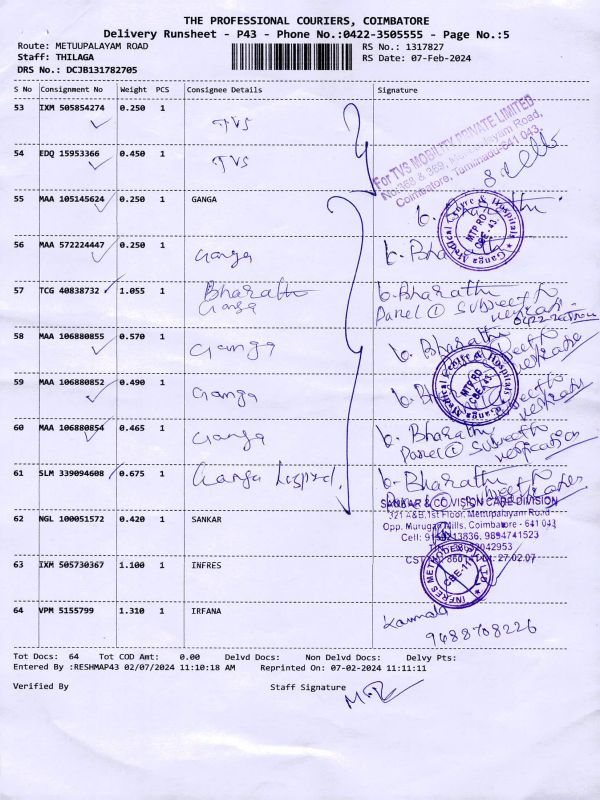 THE PROFESSIONAL COURIERS, COIMBATORE
Delivery Runsheet - P43 - Phone No.:0422-3505555 - Page No.:5
Route: METUUPALAYAM ROAD
RS No.: 1317827
Staff: THILAGA
RS Date: 07-Feb-2024
DRS No.: DCJB131782705
S No Consignment No Weight PCS Consignee Details Signature
53 IXM 505854274 0.250 1 TVS
For TVS MOBILITY PRIVATE LIMITED
No:368 & 369, Mettupalayam Road,
Coimbatore, Tamilnadu-641 043.
54 EDQ 15953366 0.450 1 TVS
55 MAA 105145624 0.250 1 GANGA
Ganga Medical Centre & Hospitals
MTP RD
CBE-43.
56 MAA 572224447 0.250 1 Ganga b. Bha
57 TCG 40838732 1.055 1 Bharathi b. Bharathi
Ganga Parcel ① Subject to
58 MAA 106880855 0.570 1 Ganga b. Bharathi
59 MAA 106880852 0.490 1 Ganga
Ganga Medical Centre & Hospitals
MTP RD
CBE-43.
60 MAA 106880854 0.465 1 Ganga b. Bharathi
Parcel ① Subject to
verification
61 SLM 339094608 0.675 1 Ganga b. Bharathi
SANKAR & CO, VISION CARE DIVISION
321 A&B, 1st Floor, Mettupalayam Road
62 NGL 100051572 0.420 1 SANKAR
Opp. Murugan Mills, Coimbatore - 641 043
9894741523
27.02.07
63 IXM 505730367 1.100 1 INFRES
INFRES METHODEX
CBE-11
64 VPM 5155799 1.310 1 IRFANA
9488708226
Tot Docs: 64 Tot COD Amt: 0.00 Delvd Docs: Non Delvd Docs: Delvy Pts:
Entered By :RESHMAP43 02/07/2024 11:10:18 AM Reprinted On: 07-02-2024 11:11:11
Verified By Staff Signature